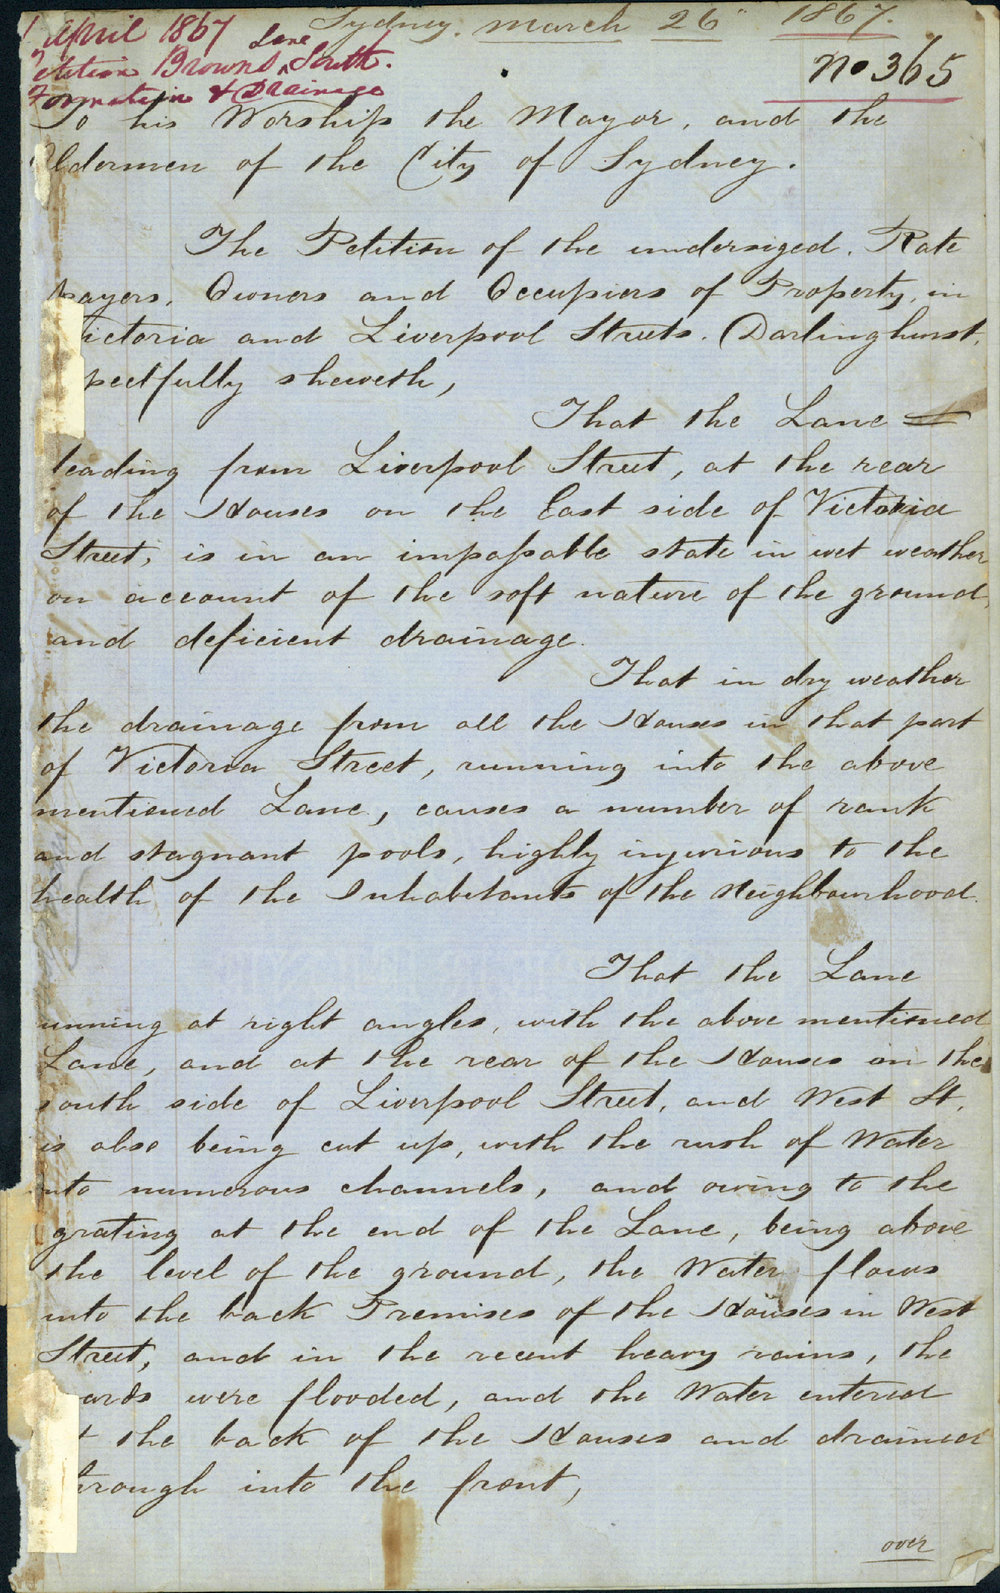 Sydney. March 26 1867.
1 April 1867
Petition Browns Lane South.
Formation & Drainage
No 365
To his Worship the Mayor, and the
Aldermen of the City of Sydney.
The Petition of the undersiged. Rate
payers. Owners and Occupiers of Property, in
ictoria and Liverpool Streets. Darlinghurst,
pectfully sheweth,
That the Lane
leading from Liverpool Street, at the rear
of the Houses on the East side of Victoria
Street, is in an impassable state in wet weather
on account of the soft nature of the ground,
and deficient drainage.
That in dry weather
the drainage from all the Houses in that part
of Victoria Street, running into the above
mentioned Lane, causes a number of rank
and stagnant pools, highly injurious to the
health of the Inhabitants of the Neighbourhood.
That the Lane
unning at right angles, with the above mentioned
Lane, and at the rear of the Houses on the
south side of Liverpool Street, and West St.
is also being cut up, with the rush of Water
into numerous channels, and owing to the
grating at the end of the Lane, being above
the level of the ground, the Water flows
into the back Premises of the Houses in West
Street, and in the recent heavy rains, the
ards were flooded, and the Water entered
t the back of the Houses and drained
hrough into the front,
over